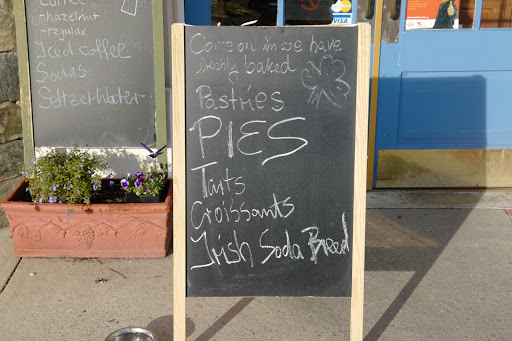 Coffee
-hazelnut
-regular
Iced coffee
Sodas
Seltzer water
VISA
Come on in we have
freshly baked
Pastries
PIES
Tarts
Croissants
Irish Soda Bread